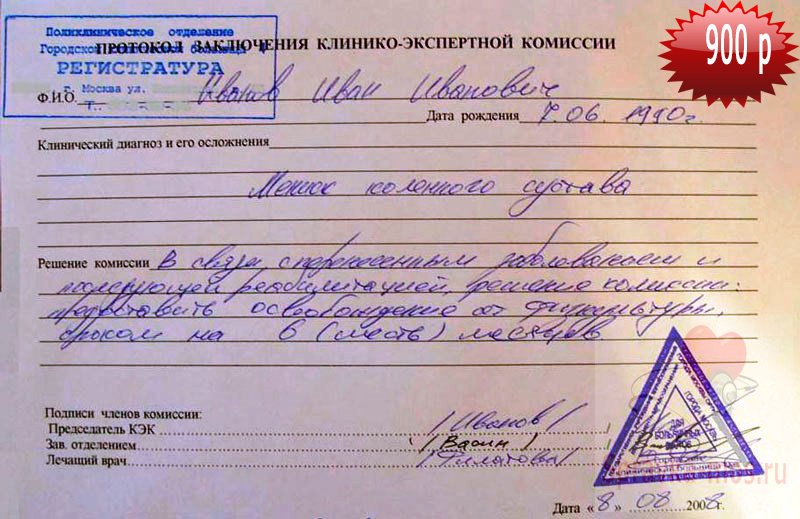 900 р
Поликлиническое отделение
Городской
ПРОТОКОЛ ЗАКЛЮЧЕНИЯ КЛИНИКО-ЭКСПЕРТНОЙ КОМИССИИ
РЕГИСТРАТУРА
г. Москва ул.
Т.
Ф.И.О. Иванов Иван Иванович
Дата рождения 7.06.1990г.
Клинический диагноз и его осложнения
Мениск коленного сустава
Решение комиссии В связи с перенесенным заболеванием и
последующей реабилитацией, решение комиссии:
предоставить освобождение от физкультуры,
сроком на 6 (шесть) месяцев.
Подписи членов комиссии:
Председатель КЭК /Иванов/
Зав. отделением (Васин)
Лечащий врач (Филатова)
ГОРОДА МОСКВЫ
ДЛЯ
БОЛЬНИЧНЫХ
ЛИСТОВ
Городская
клиническая больница
Дата «8» 08 2008г.